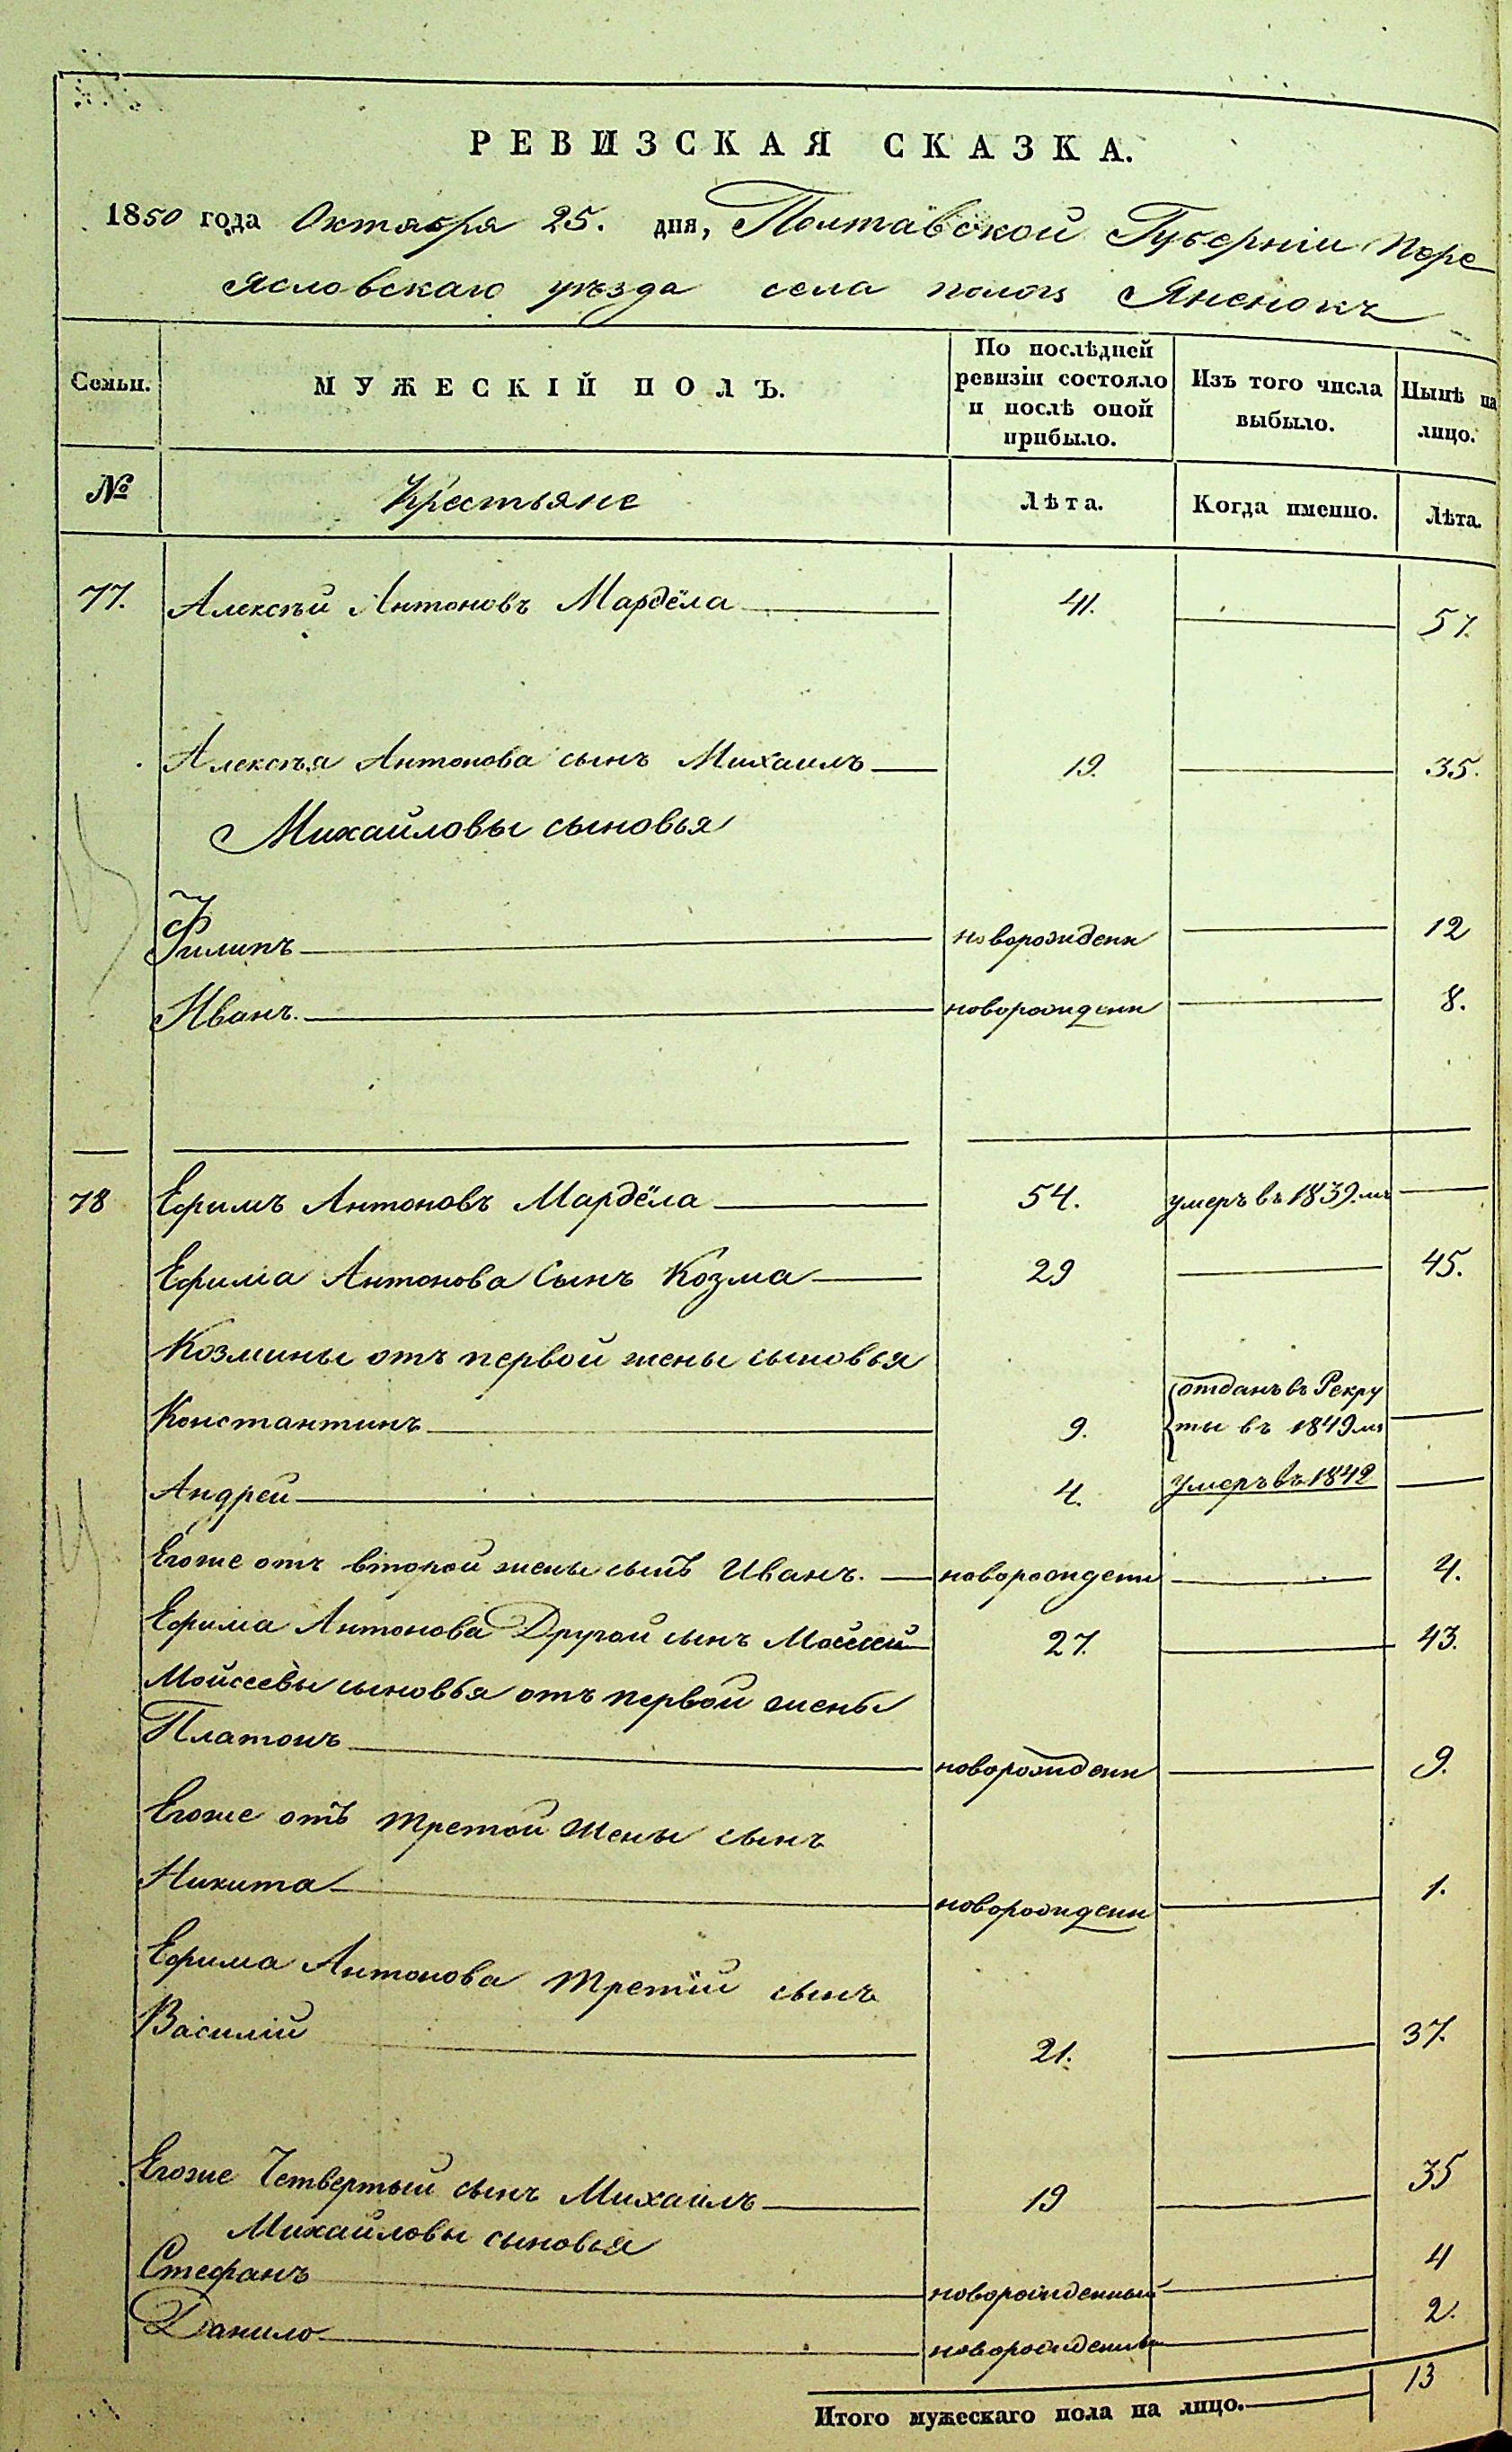 РЕВИЗСКАЯ СКАЗКА.
1850 года Октября 25. дня, Полтавской Губерніи Пере
ясловскаго уѣзда села пологъ Яненокъ
Семьи.
МУЖЕСКІЙ ПОЛЪ.
По послѣдней ревизіи состояло и послѣ оной прибыло.
Изъ того числа выбыло.
Нынѣ на лицо.
№ Крестьяне Лѣта. Когда именно. Лѣта.
77. Алексѣй Антоновъ Мардёла 41. 57.
Алексѣя Антонова сынъ Михаилъ 19. 35.
Михайловы сыновья
Филипъ новорожденн 12
Иванъ. новорожденн 8.
78 Ефимъ Антоновъ Мардёла 54. умеръ въ 1839.мъ
Ефима Антонова Сынъ Козма 29 45.
Козмины отъ первой жены сыновья
Константинъ 9. отданъ въ Рекру
ты въ 1849мъ
Андрей 4. умеръ въ 1842
Егоже отъ второй жены сынъ Иванъ. новорожденн 4.
Ефима Антонова Другой сынъ Мойсей 27. 43.
Мойсеевы сыновья отъ первой жены
Платонъ новорожденн 9.
Егоже отъ третой жены сынъ
Никита новорожденн 1.
Ефима Антонова третій сынъ
Василій 21. 37.
Егоже Четвертый сынъ Михаилъ 19 35
Михайловы сыновья
Стефанъ новорожденный 4
Данило новорожденны 2.
Итого мужескаго пола на лицо. 13